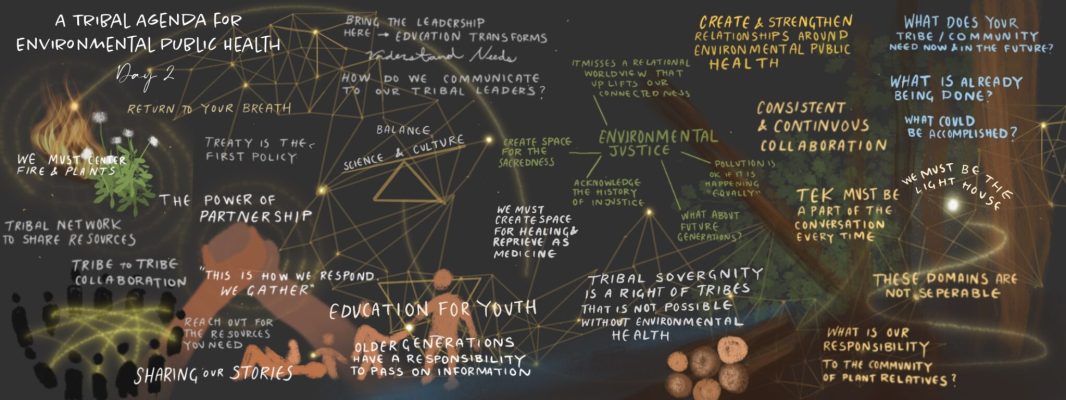 A TRIBAL AGENDA FOR
ENVIRONMENTAL PUBLIC HEALTH
Day 2
RETURN TO YOUR BREATH
WE MUST CENTER
FIRE & PLANTS
TREATY IS THE
FIRST POLICY
THE POWER OF
PARTNERSHIP
TRIBAL NETWORK
TO SHARE RESOURCES
TRIBE TO TRIBE
COLLABORATION
"THIS IS HOW WE RESPOND
WE GATHER"
REACH OUT FOR
THE RESOURCES
YOU NEED
SHARING OUR STORIES
BRING THE LEADERSHIP
HERE → EDUCATION TRANSFORMS
Understand Needs
HOW DO WE COMMUNICATE
TO OUR TRIBAL LEADERS?
BALANCE
SCIENCE & CULTURE
EDUCATION FOR YOUTH
OLDER GENERATIONS
HAVE A RESPONSIBILITY
TO PASS ON INFORMATION
IT MISSES A RELATIONAL
WORLDVIEW THAT
UPLIFTS OUR
CONNECTEDNESS
CREATE SPACE
FOR THE
SACREDNESS
ENVIRONMENTAL
JUSTICE
ACKNOWLEDGE
THE HISTORY
OF INJUSTICE
POLLUTION IS
OK IF IT IS
HAPPENING
"EQUALLY"
WHAT ABOUT
FUTURE
GENERATIONS?
WE MUST
CREATE SPACE
FOR HEALING &
REPRIEVE AS
MEDICINE
TRIBAL SOVERGNITY
IS A RIGHT OF TRIBES
THAT IS NOT POSSIBLE
WITHOUT ENVIRONMENTAL
HEALTH
CREATE & STRENGTHEN
RELATIONSHIPS AROUND
ENVIRONMENTAL PUBLIC
HEALTH
CONSISTENT
& CONTINUOUS
COLLABORATION
TEK MUST BE
A PART OF THE
CONVERSATION
EVERY TIME
WHAT DOES YOUR
TRIBE / COMMUNITY
NEED NOW & IN THE FUTURE?
WHAT IS ALREADY
BEING DONE?
WHAT COULD
BE ACCOMPLISHED?
WE MUST BE THE
LIGHT HOUSE
THESE DOMAINS ARE
NOT SEPERABLE
WHAT IS OUR
RESPONSIBILITY
TO THE COMMUNITY
OF PLANT RELATIVES?